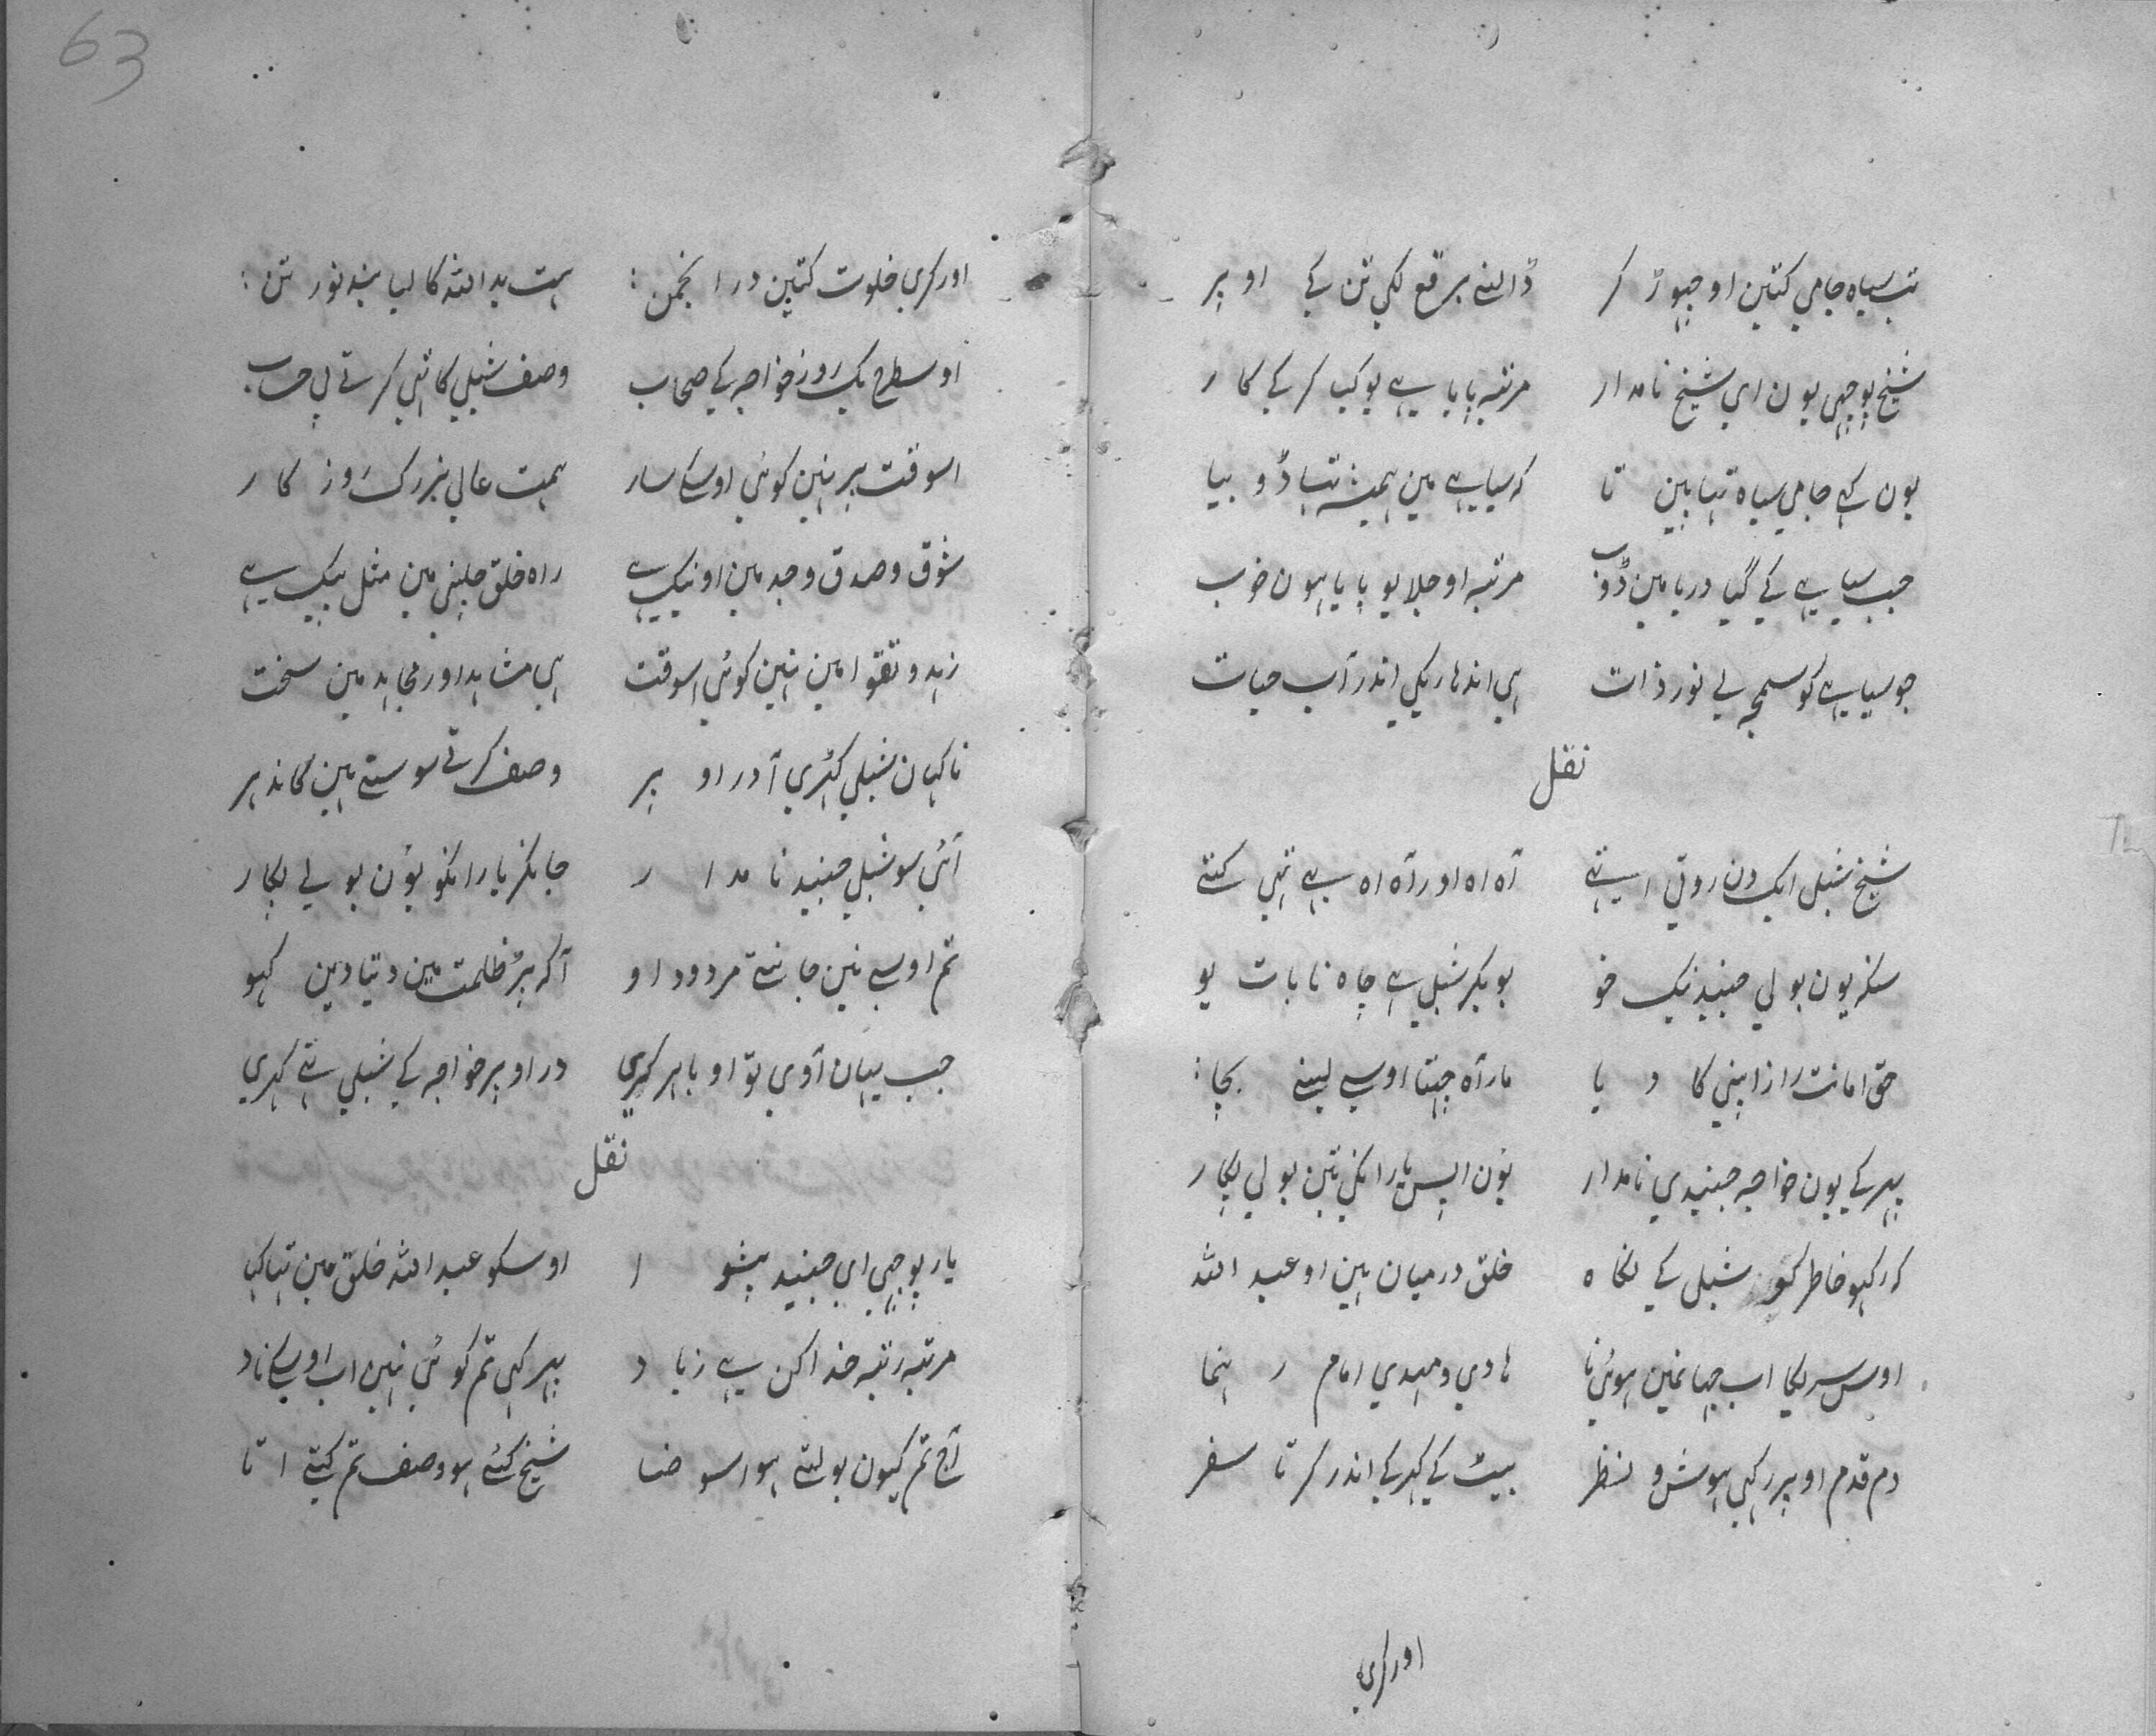 تب سیاه جامی کتین او چہوڑ کر ڈالنے برقع لکی تن کے اوپر
شیخ پوچہی یون ای شیخ نامدار مرتبہ پایا ہے یو کیا کر کے کار
یون کہے جامی سیاه تہا ہین تا کہ سیاہے مین ہمیشہ تہا ڈوبیا
جب سیاہے کے گیا دریا مین ڈوب مرتبہ اوجلا یو پایا ہون خوب
جو سیاہے کو سمجہ لے نور ذات ہی اندہاریکی اندر آب حیات
نقل
شیخ شبلی ایک دن روتی اتہے آه اه اور آه اه ہے تہی کتے
سنکر یون بولی جنید نیک خو بو بکر شبلی ہے چاہ نا بات یو
حق امانت راز اپنی کا دیا مار آه جیتا اوسے لینے بچا :
پہر کے یون خواجہ جنیدی نامدار یون اپس یارانکی تین بولی پکار
کہ رکہو خاطر کو شبلی کے نگاه خلق درمیان ہین او عبد الله
اوس سریکا اب جہانمین ہوئی نا ہادی و مہدی امام رہنما
دم قدم اوپر رکہی ہوش و نظر بیٹ کے کہر کے اندر کرتا سفر
اور کری
63
اور کری خلوت کتین در انجمن : ہمت ید الله کا لیا بند نور تن :
اوسطرح یک روز خواجہ کے صحاب وصف شبلی کا تہی کرتے بی حساب
اسوقت پر نہین کوئی اوسکے سار ہمت عالی بزرگ روزکار
شوق و صدق وجد مین او نیک ہے راه خلق چلنی مین مثل پیک ہے
زہد و تقوا مین نہین کوئی اسوقت ہی مشاہد اور مجاہد مین سخت
ناکہان شبلی کہڑی آ در اوپر وصف کرتے سو ستے ہین کاند ہر
آئی سو شبلی جنید نامدار جانکر یارانکو یون بولے پکار
تم اوسے نین جانتے مردود او آکہ پڑ ظلمت مین دتیا دین کہو
جب یہان آوی تو او باہر کہری در اوپر خواجہ کے شبلی تہے کہری
نقل
یار پوچہی ای جنید پیشوا اوسکو عبد الله خلق مین تہا کہا
مرتبہ رتبہ خدا کن ہے زیاد پہر کہی تم کوئی نہین اب اوسکے ناد
آج تم کیون بولتے ہو اسو ضا شیخ کئے ہو وصف تم کیتے اتا